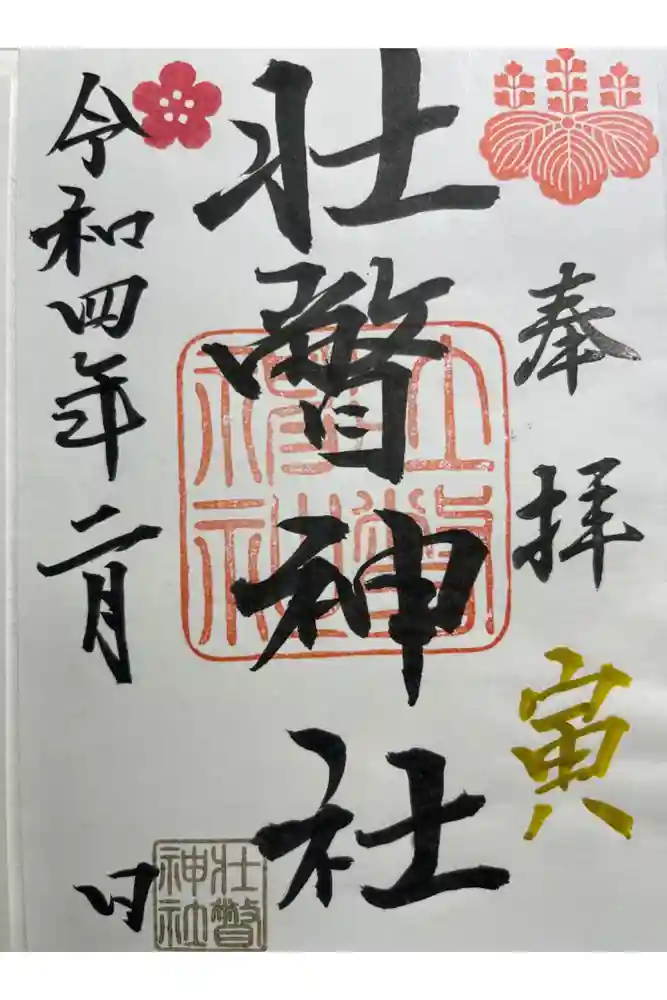 奉拝 寅
壮瞥神社
令和四年二月 日
壮瞥
神社